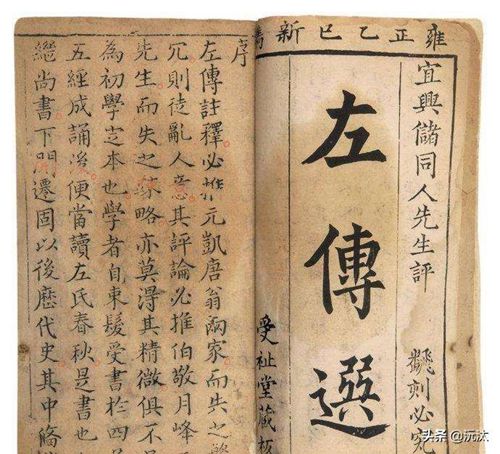 雍正乙巳新
宜興儲同人先生評
翻刻必究
左傳選
受祉堂藏板
序
左傳註釋必推元凱唐翁兩家而失之
冗則徒亂人意其評論必推伯敬月峰
先生而失之略亦莫得其精微俱不
為初學定本也學者自束髮受書於四
五經成誦後便當讀左氏春秋是書也
繼尚書下開遷固以後歷代史其中條
头条 @沅汰